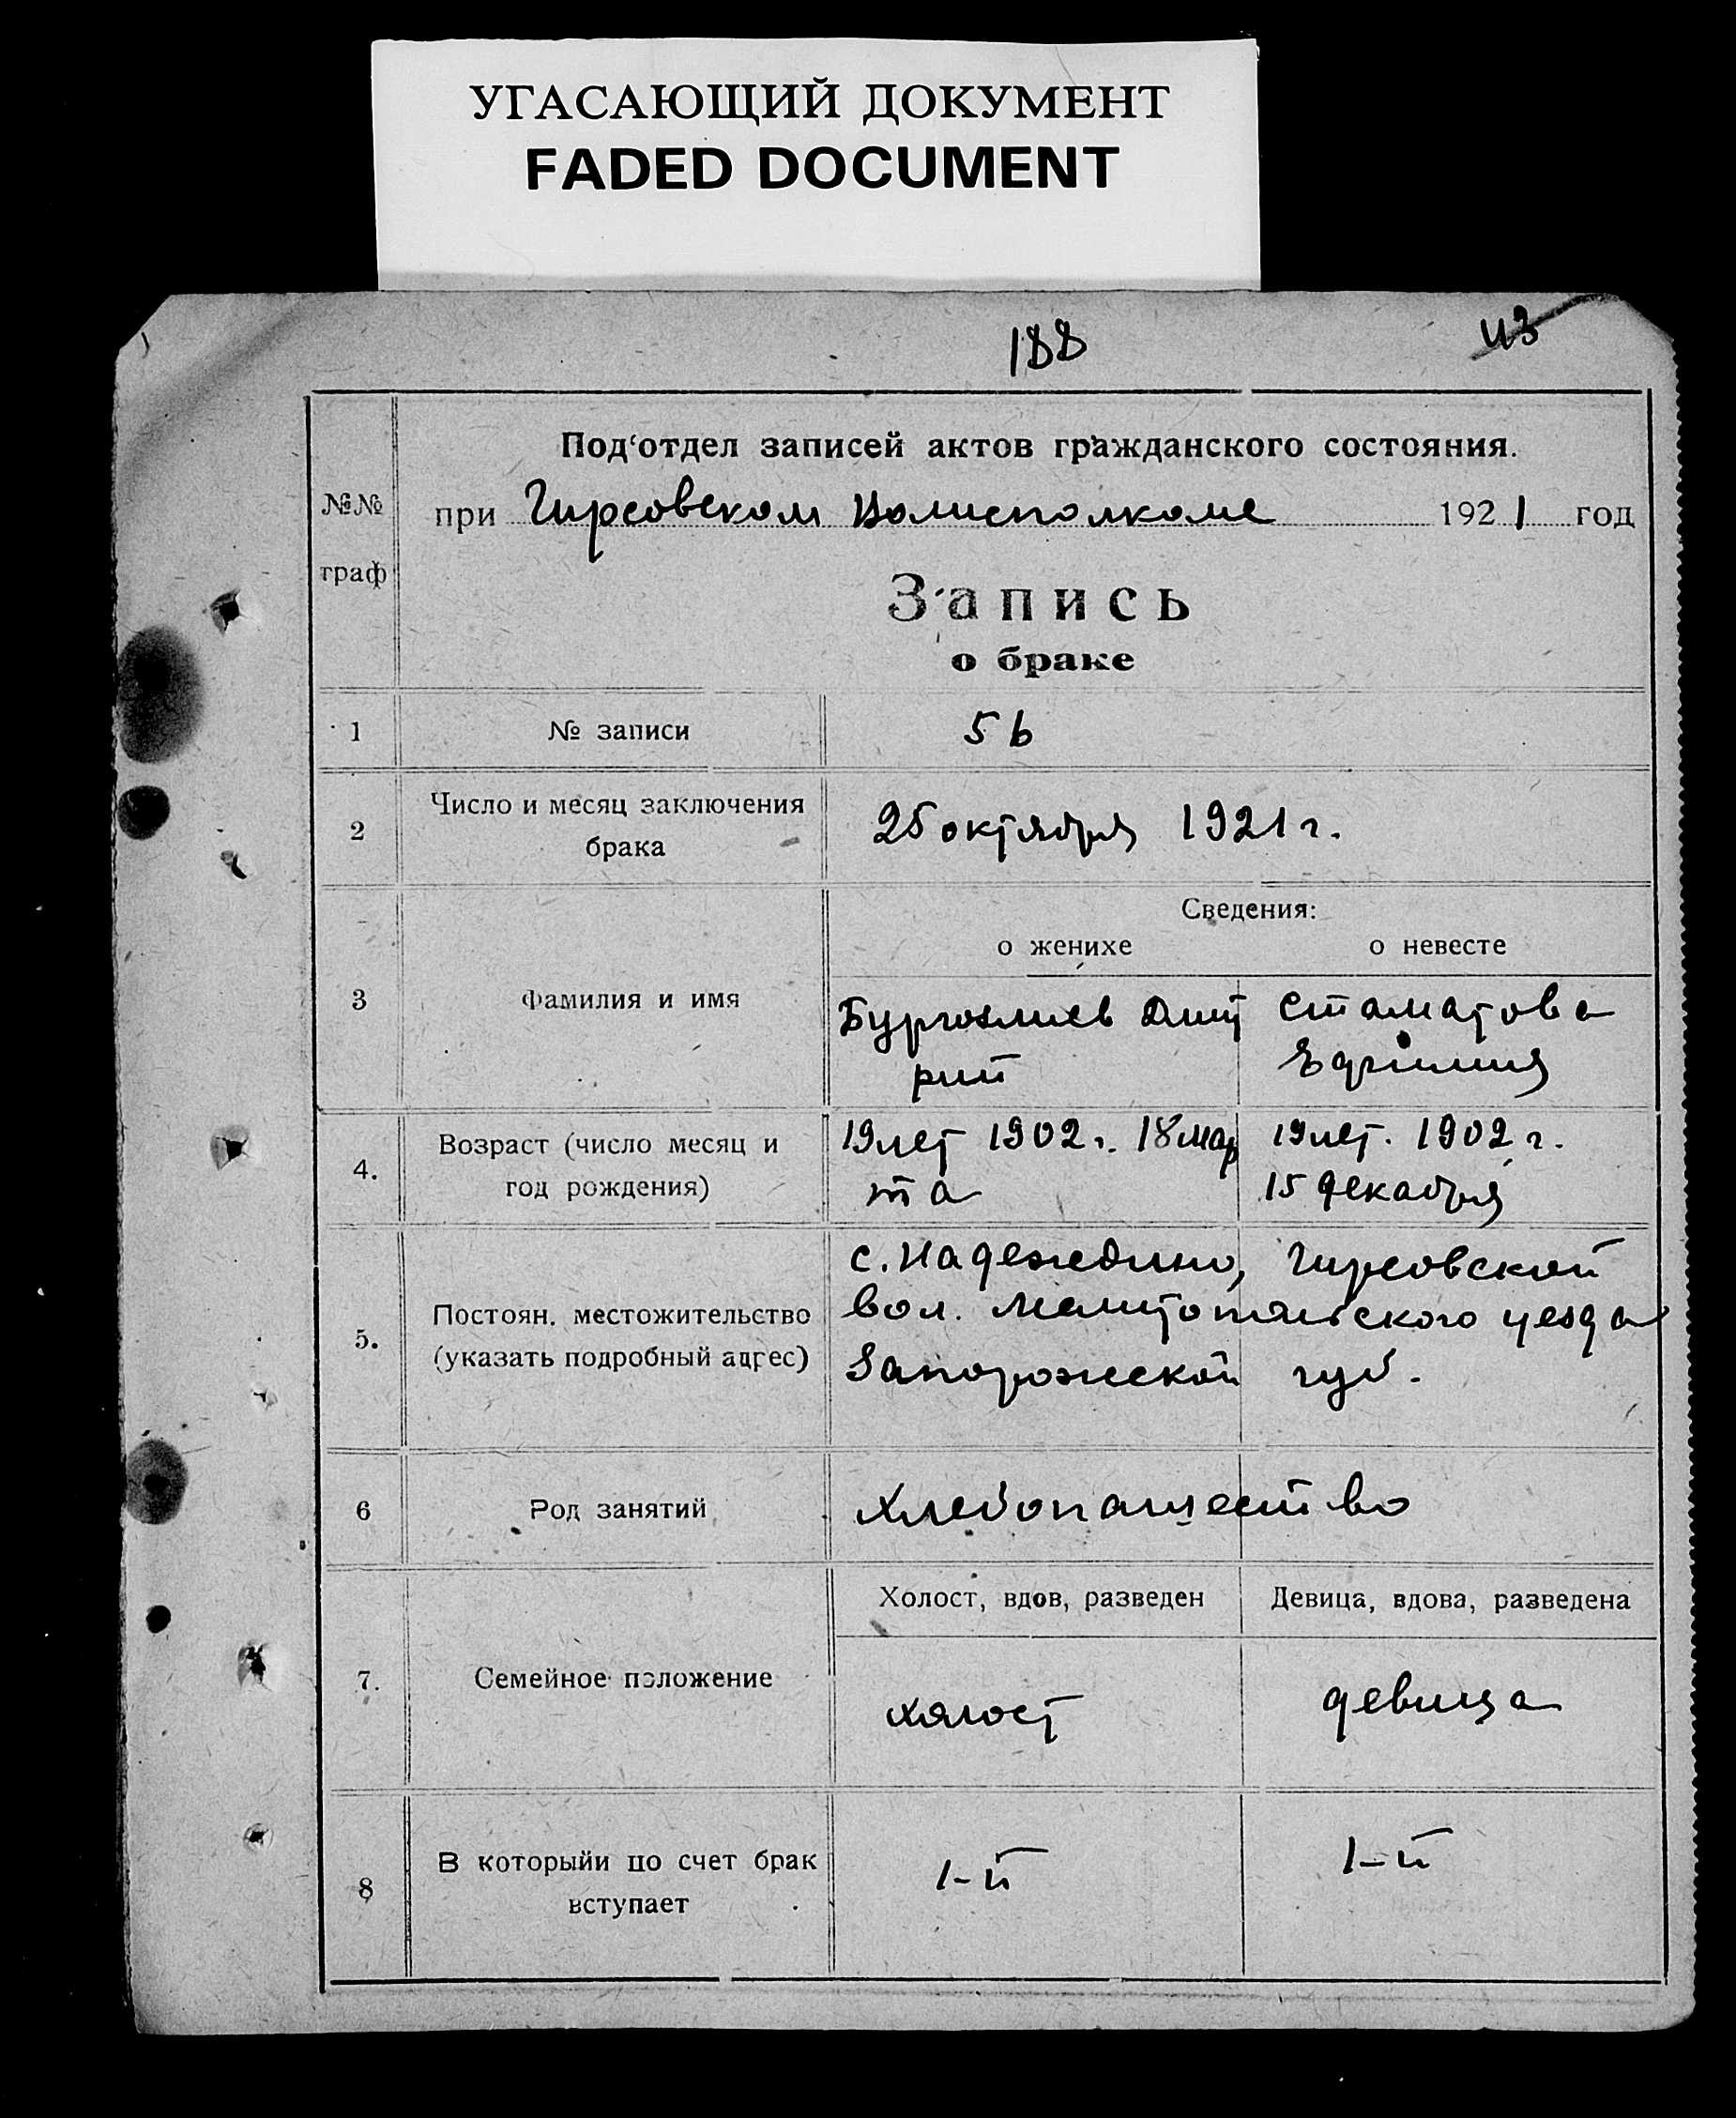 УГАСАЮЩИЙ ДОКУМЕНТ
FADED DOCUMENT
188
43
Под‘отдел записей актов гражданского состояния.
№№ граф
при Гирсовском Волисполкоме 1921 год
Запись
о браке
1 № записи 56
2 Число и месяц заключения брака 25 октября 1921 г.
Сведения:
о женихе о невесте
3 Фамилия и имя
Дмит
рий
Стаматова
Ефимия
4. Возраст (число месяц и год рождения)
19 лет 1902 г. 18 мар
та
19 лет. 1902 г.
15 декабря
5. Постоян. местожительство (указать подробный адрес)
с. Надеждино, Гирсовской
вол. Мелитопольского уезда
Запорожской губ.
6 Род занятий Хлебопашество
Холост, вдов, разведен Девица, вдова, разведена
7. Семейное положение холост девица
8 В которыйи по счет брак вступает 1-й 1-й